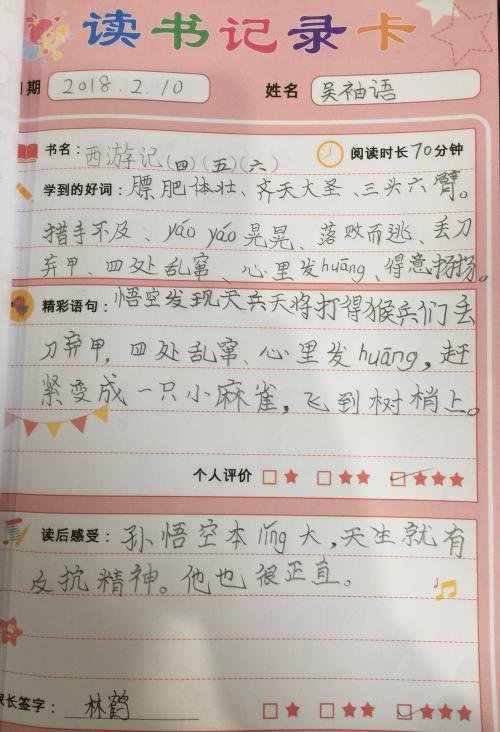 读书记录卡
日期 2018.2.10 姓名 吴袖语
书名：西游记(四)(五)(六) 阅读时长70分钟
学到的好词：膘肥体壮、齐天大圣、三头六臂。
措手不及、yáo yáo晃晃、落败而逃、丢刀
弃甲、四处乱窜、心里发huāng、得意扬扬。
精彩语句：悟空发现天兵天将打得猴兵们丢
刀弃甲，四处乱窜、心里发huāng，赶
紧变成一只小麻雀，飞到树梢上。
个人评价
读后感受：孙悟空本lǐng大，天生就有
反抗精神。他也很正直。
家长签字：林鹤